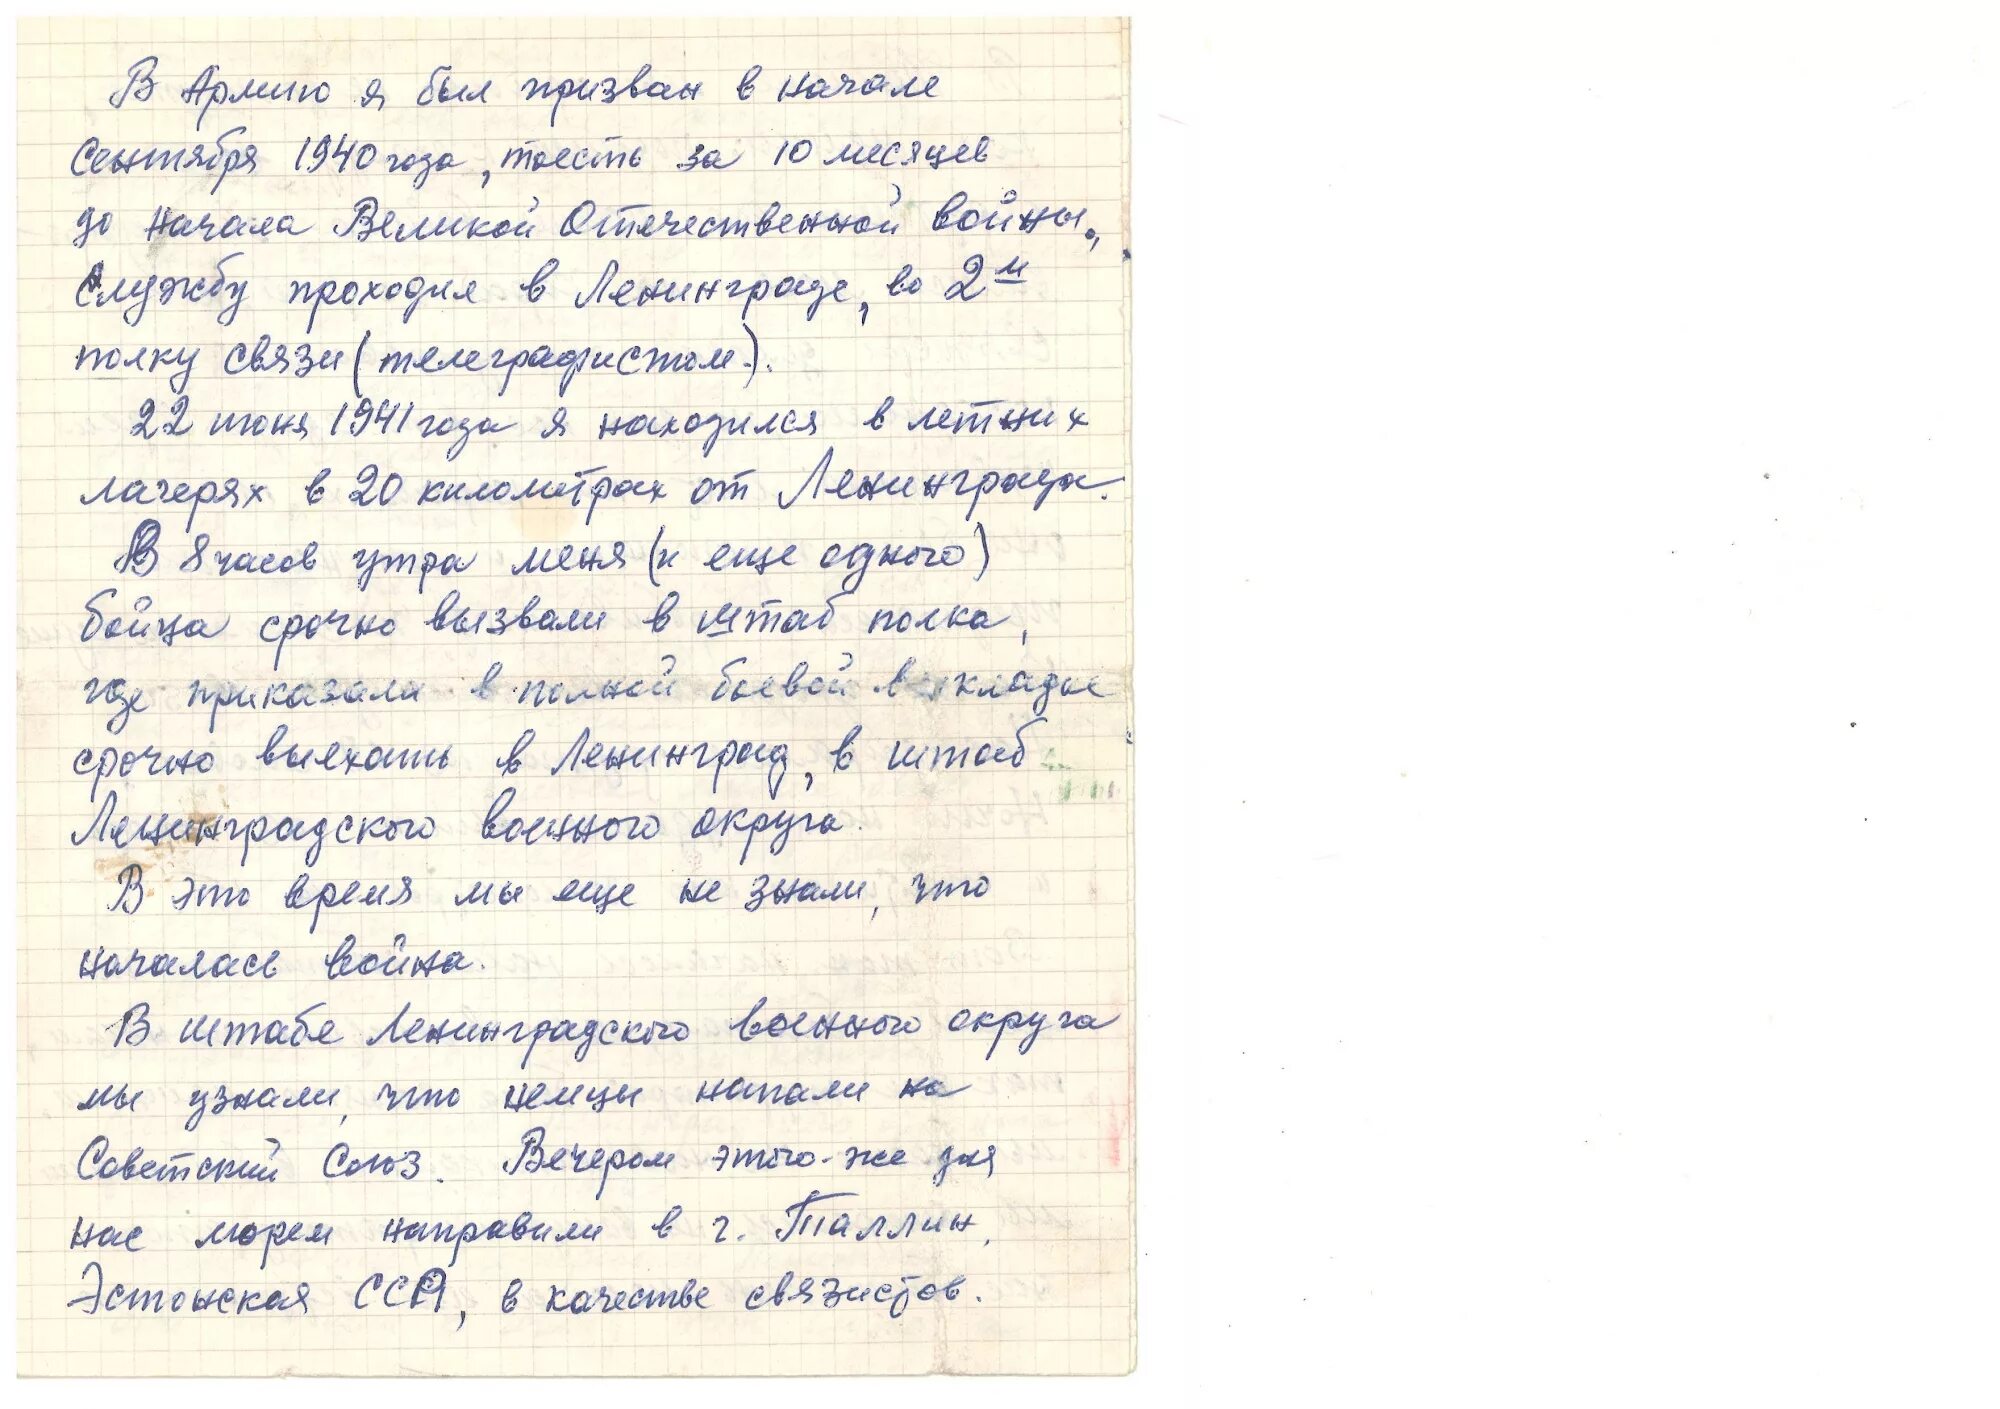 В Армию я был призван в начале
Сентября 1940 года, тоесть за 10 месяцев
до начала Великой Отечественной войны.,
Службу проходил в Ленинграде, во 2м
полку связи (телеграфистом).
22 июня 1941 года я находился в летних
лагерях в 20 километрах от Ленинграда.
В 8 часов утра меня (и еще одного)
бойца срочно вызвали в штаб полка,
где приказали в полной боевой выкладке
срочно выехать в Ленинград, в штаб
Ленинградского военного округа.
В это время мы еще не знали, что
началась война.
В штабе Ленинградского военного округа
мы узнали, что немцы напали на
Советский Союз. Вечером этого-же дня
нас морем направили в г. Таллин,
Эстонская ССР, в качестве связистов.